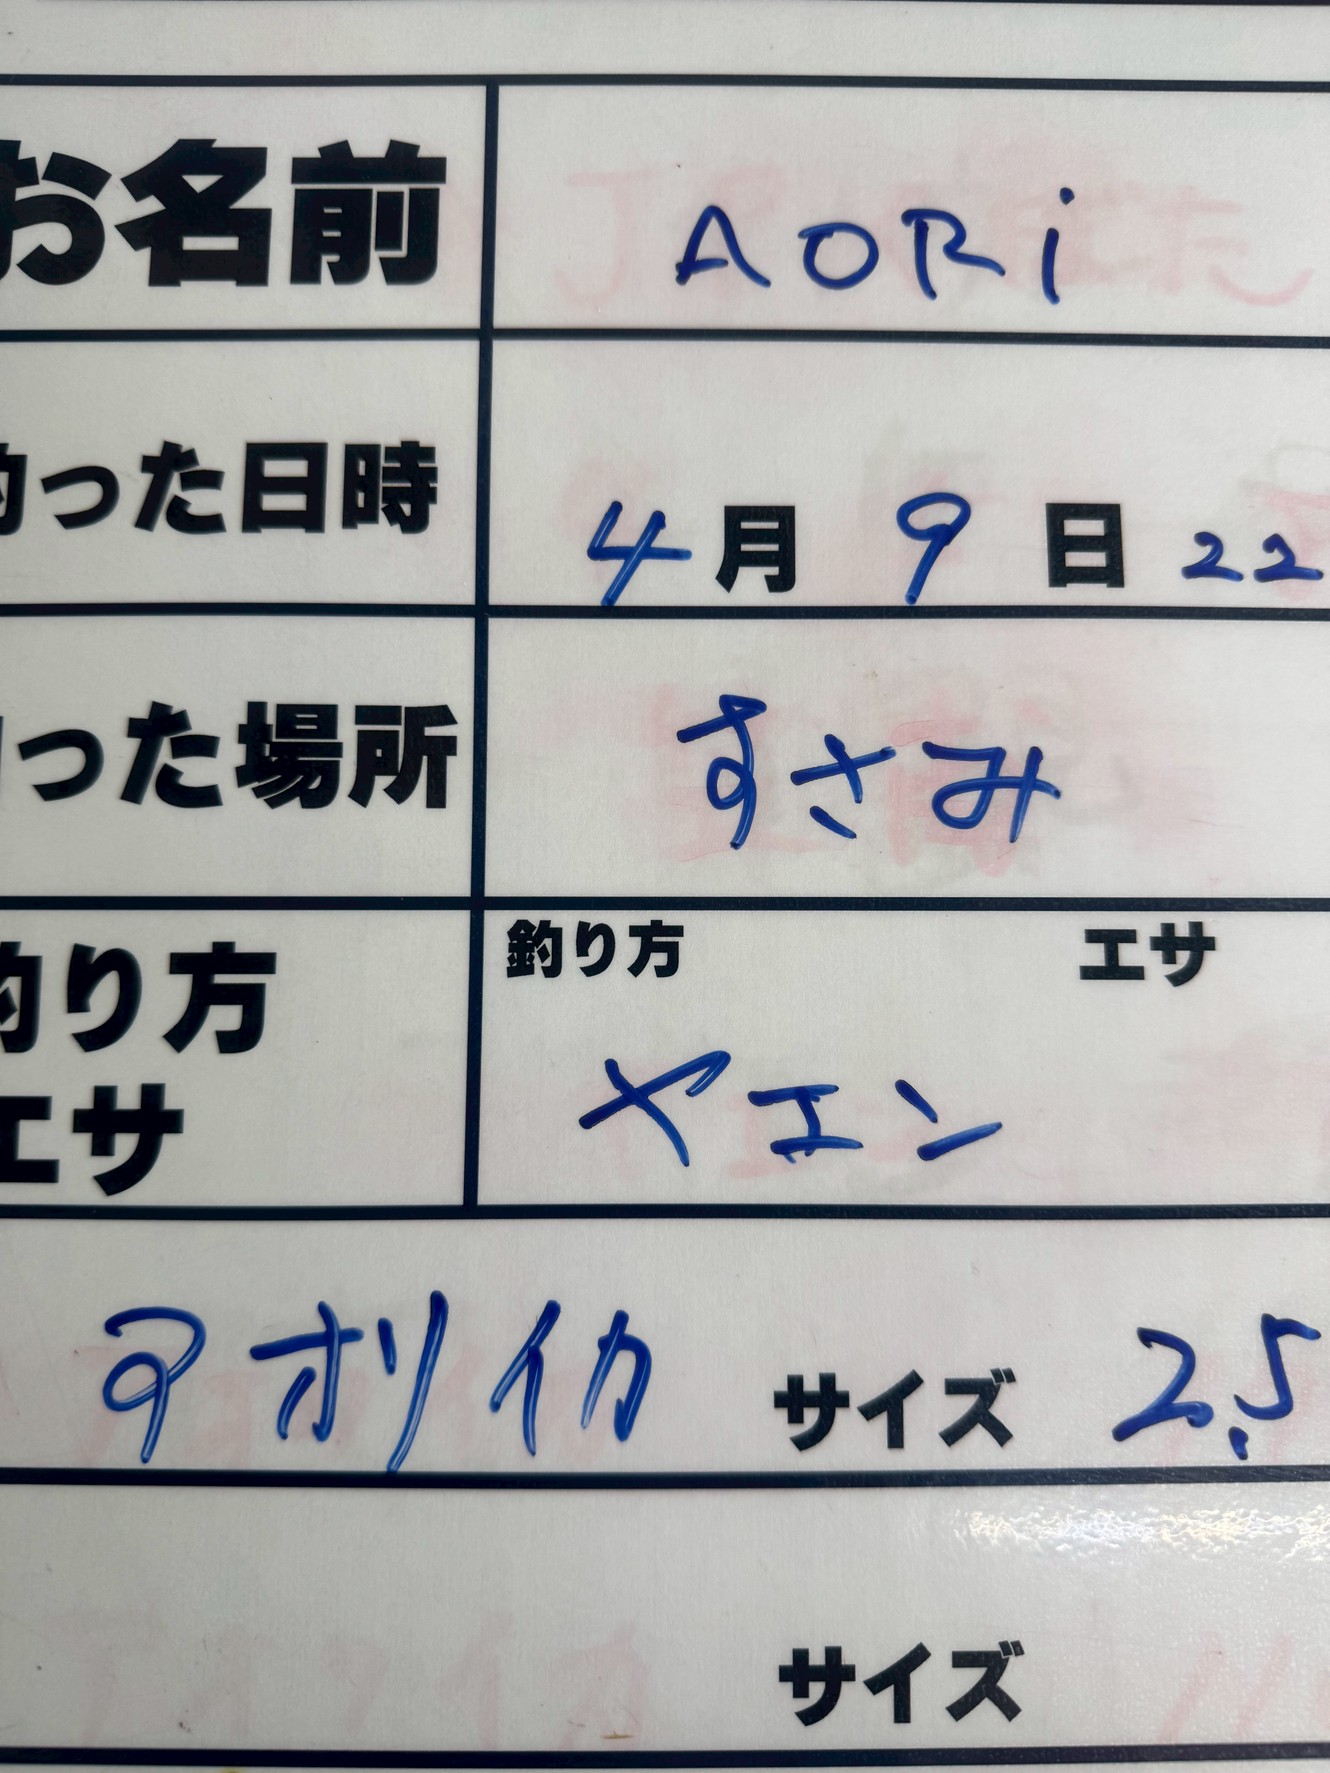 お名前 AORi
釣った日時 4月9日 22
った場所 すさみ
釣り方 エサ
釣り方
エサ
ヤエン
アオリイカ サイズ 2.5
サイズ